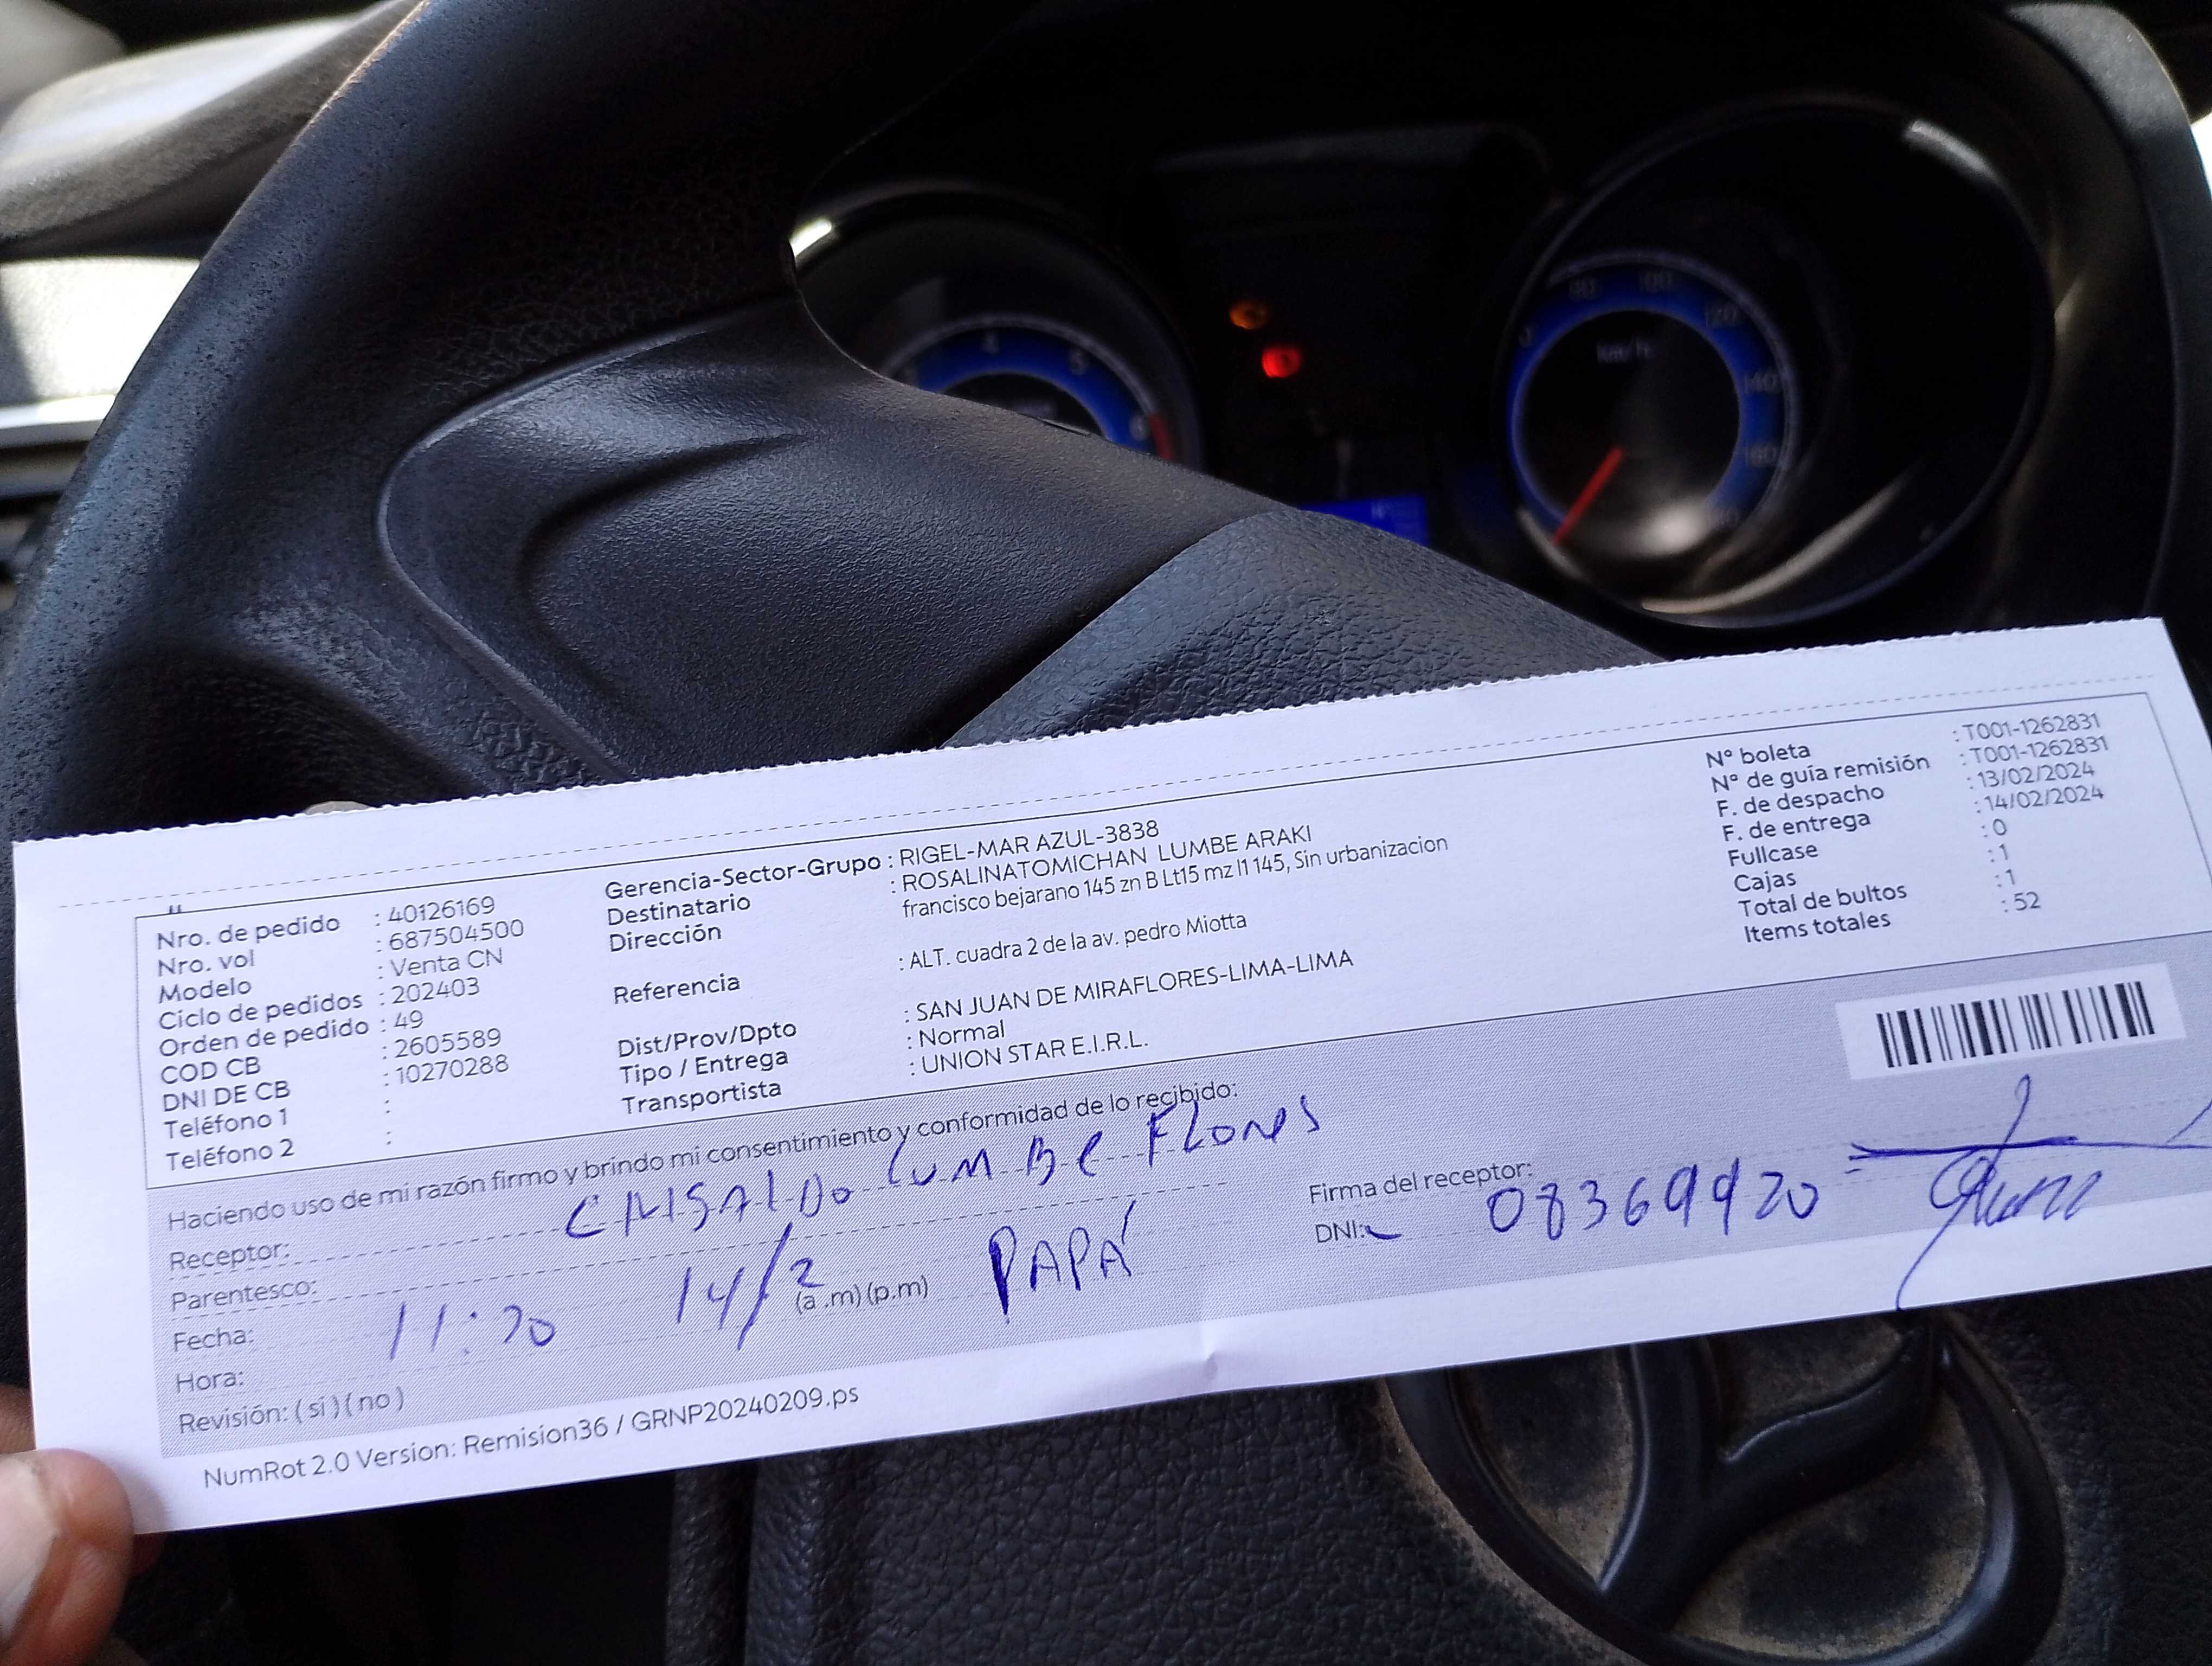 Nro. de pedido : 40126169
Nro. vol : 687504500
Modelo : Venta CN
Ciclo de pedidos : 202403
Orden de pedido : 49
COD CB : 2605589
DNI DE CB : 10270288
Teléfono 1 :
Teléfono 2 :
Gerencia-Sector-Grupo : RIGEL-MAR AZUL-3838
Destinatario : ROSALINATOMICHAN LUMBE ARAKI
Dirección francisco bejarano 145 zn B Lt15 mz l1 145, Sin urbanizacion
Referencia : ALT. cuadra 2 de la av. pedro Miotta
Dist/Prov/Dpto : SAN JUAN DE MIRAFLORES-LIMA-LIMA
Tipo / Entrega : Normal
Transportista : UNION STAR E.I.R.L.
N° boleta : T001-1262831
N° de guía remisión : T001-1262831
F. de despacho : 13/02/2024
F. de entrega : 14/02/2024
Fullcase : 0
Cajas : 1
Total de bultos : 1
Items totales : 52
Haciendo uso de mi razón firmo y brindo mi consentimiento y conformidad de lo recibido:
Receptor: LUMBE FLORES
Parentesco:
Fecha: 14/2 PAPÁ
Hora: (a .m) (p.m)
Revisión: ( sí ) ( no )
Firma del receptor:
DNI: 08369920
NumRot 2.0 Version: Remision36 / GRNP20240209.ps
4 5 6
80 100 120 140 160
km/h